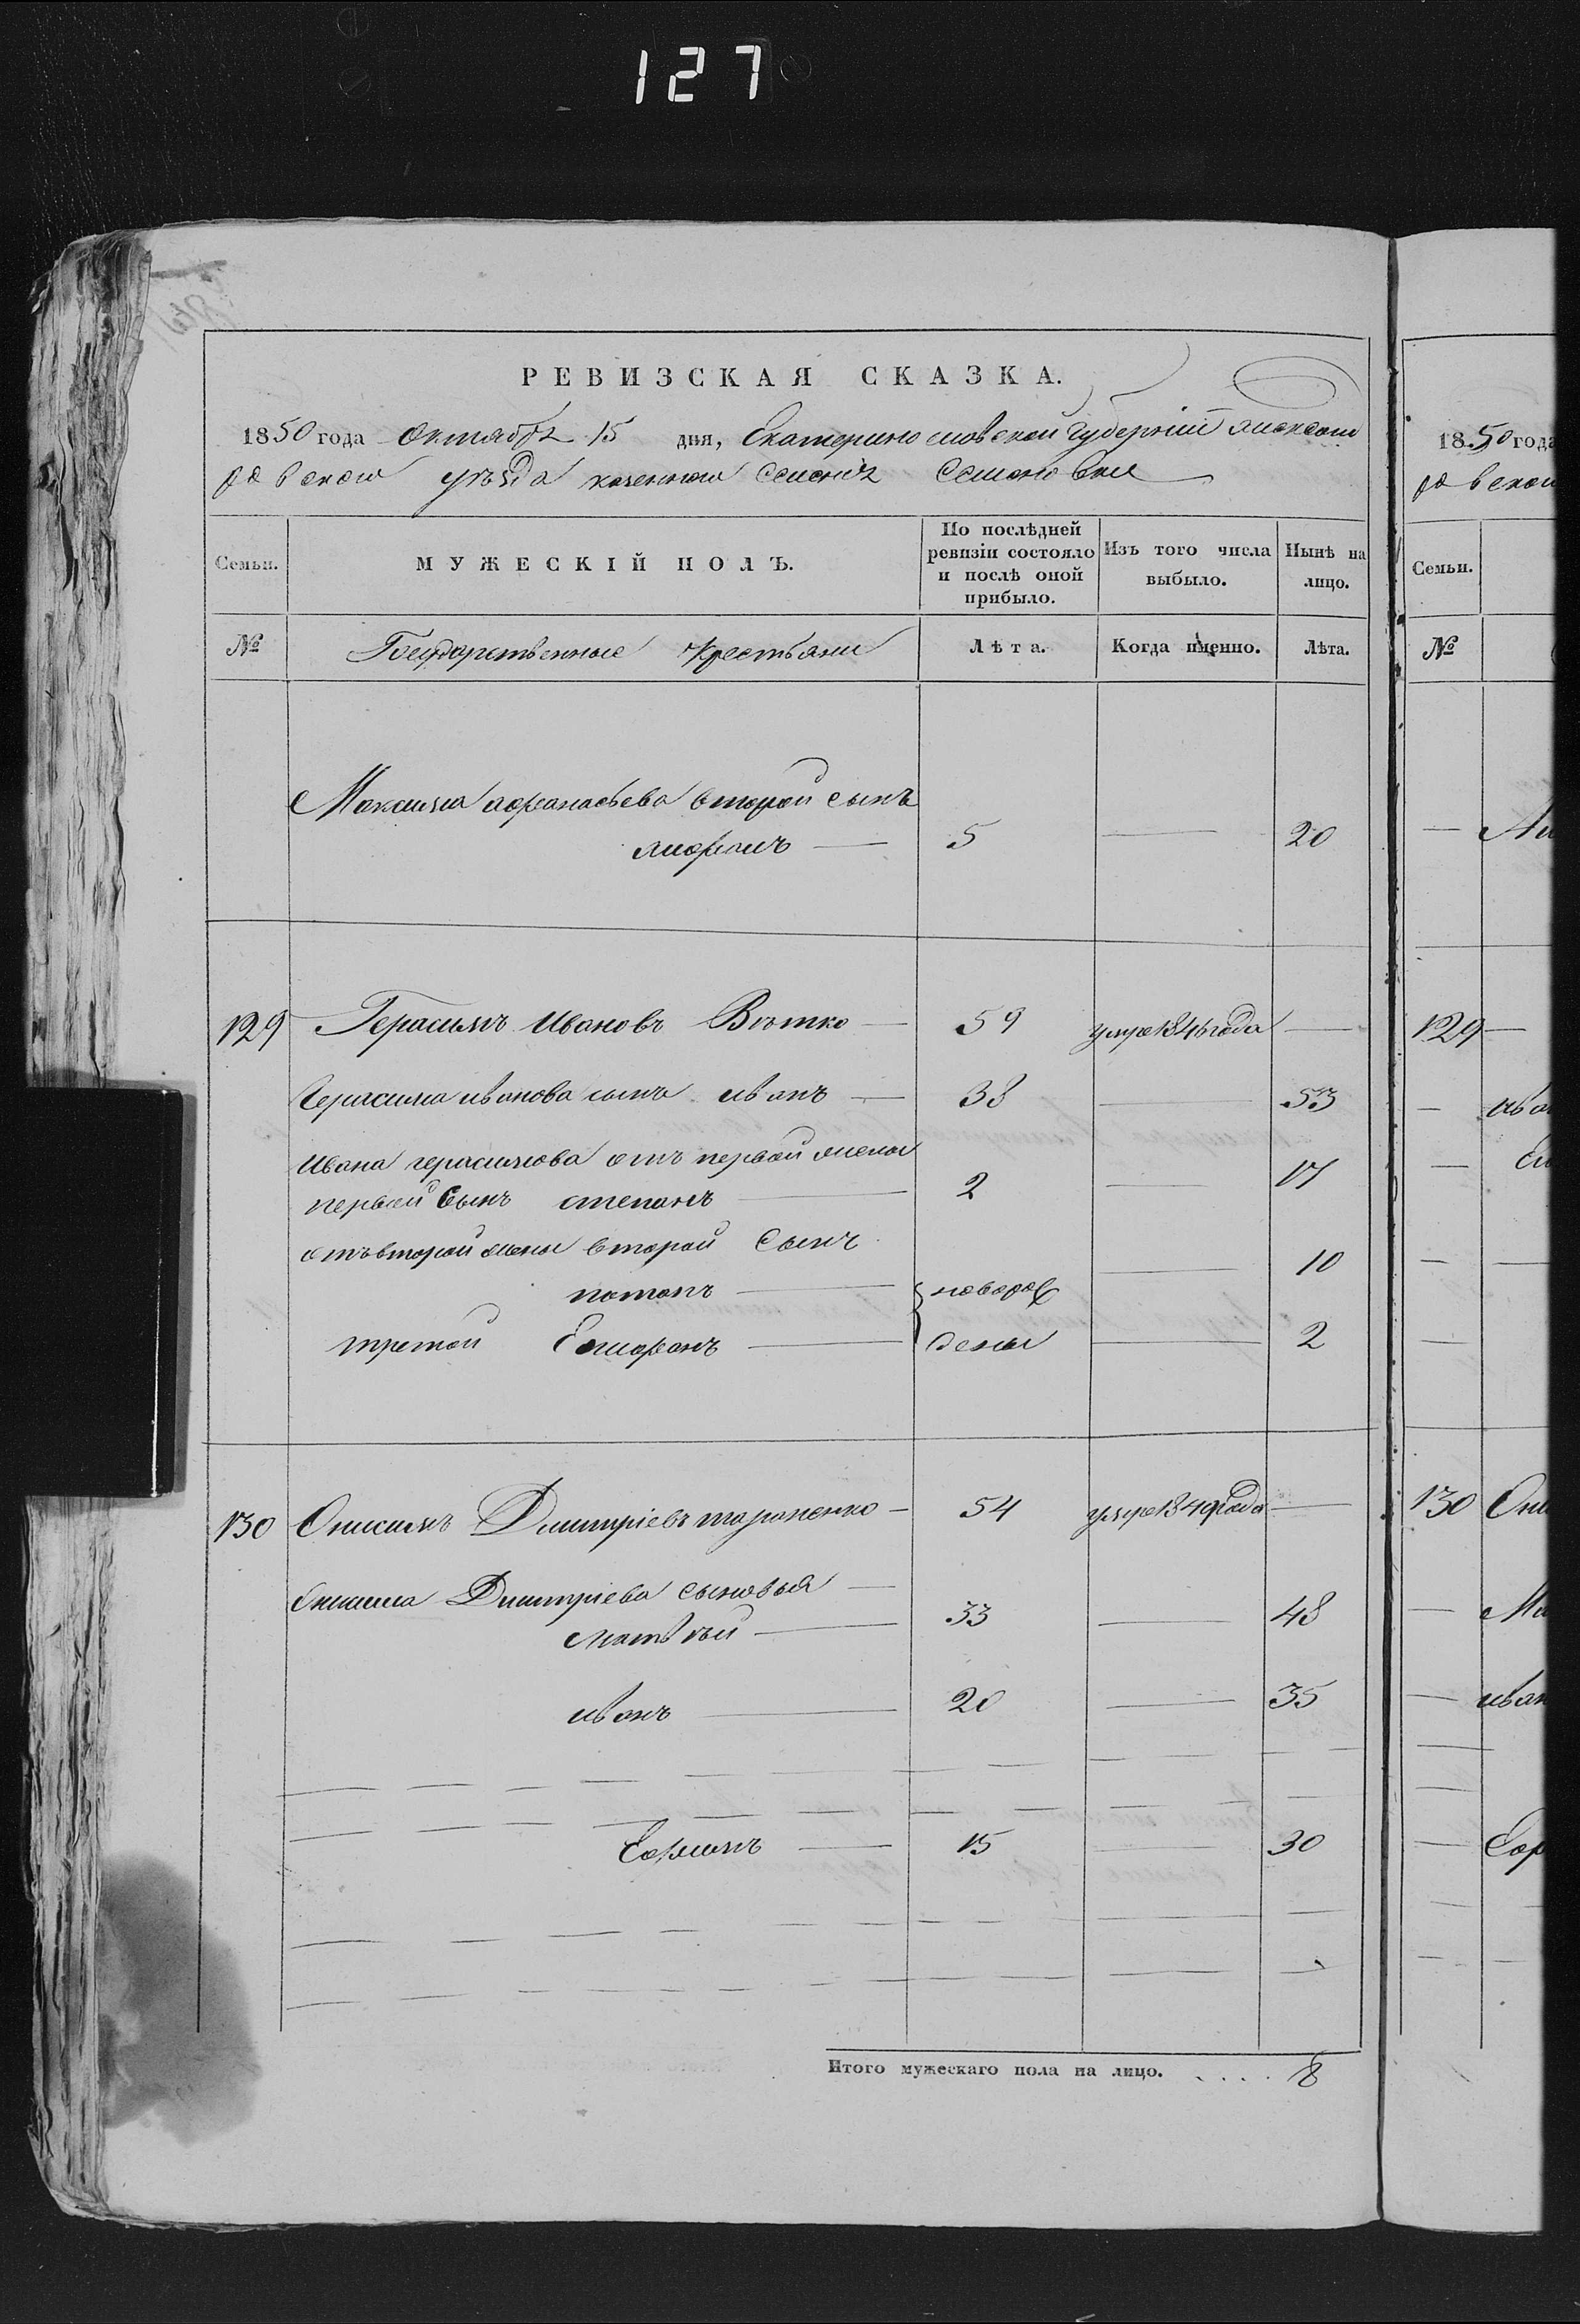 127
РЕВИЗСКАЯ СКАЗКА.
1850 года Октября 15 дня, Екатеринославской Губерніи Алексан
ровского уѣзда казенного Селенія Семеновки
Семьи. МУЖЕСКІЙ ПОЛЪ. По послѣдней ревизіи состояло и послѣ оной прибыло. Изъ того числа выбыло. Нынѣ на лицо.
№ Государственные Крестьяни Лѣта. Когда имянно. Лѣта.
Максима афанасьева второй сынъ
5 20
129 Герасимъ Ивановъ Вѣтко 59 умре 1846 года
Герасима иванова сынъ иванъ 38 53
Ивана герасимова отъ первой жены
первый Сынъ степанъ 2 17
отъ второй жены второй Сынъ
потапъ новорож 10
третой дены 2
130 Онисимъ Димитріевъ тараненко 54 умре 1849 года
Онисима Димитріева сыновья
матвѣй 33 48
иванъ 20 35
Ефимъ 15 30
Итого мужескаго пола на лицо. . . . . 8
1850 года
Семьи.
№
129
130